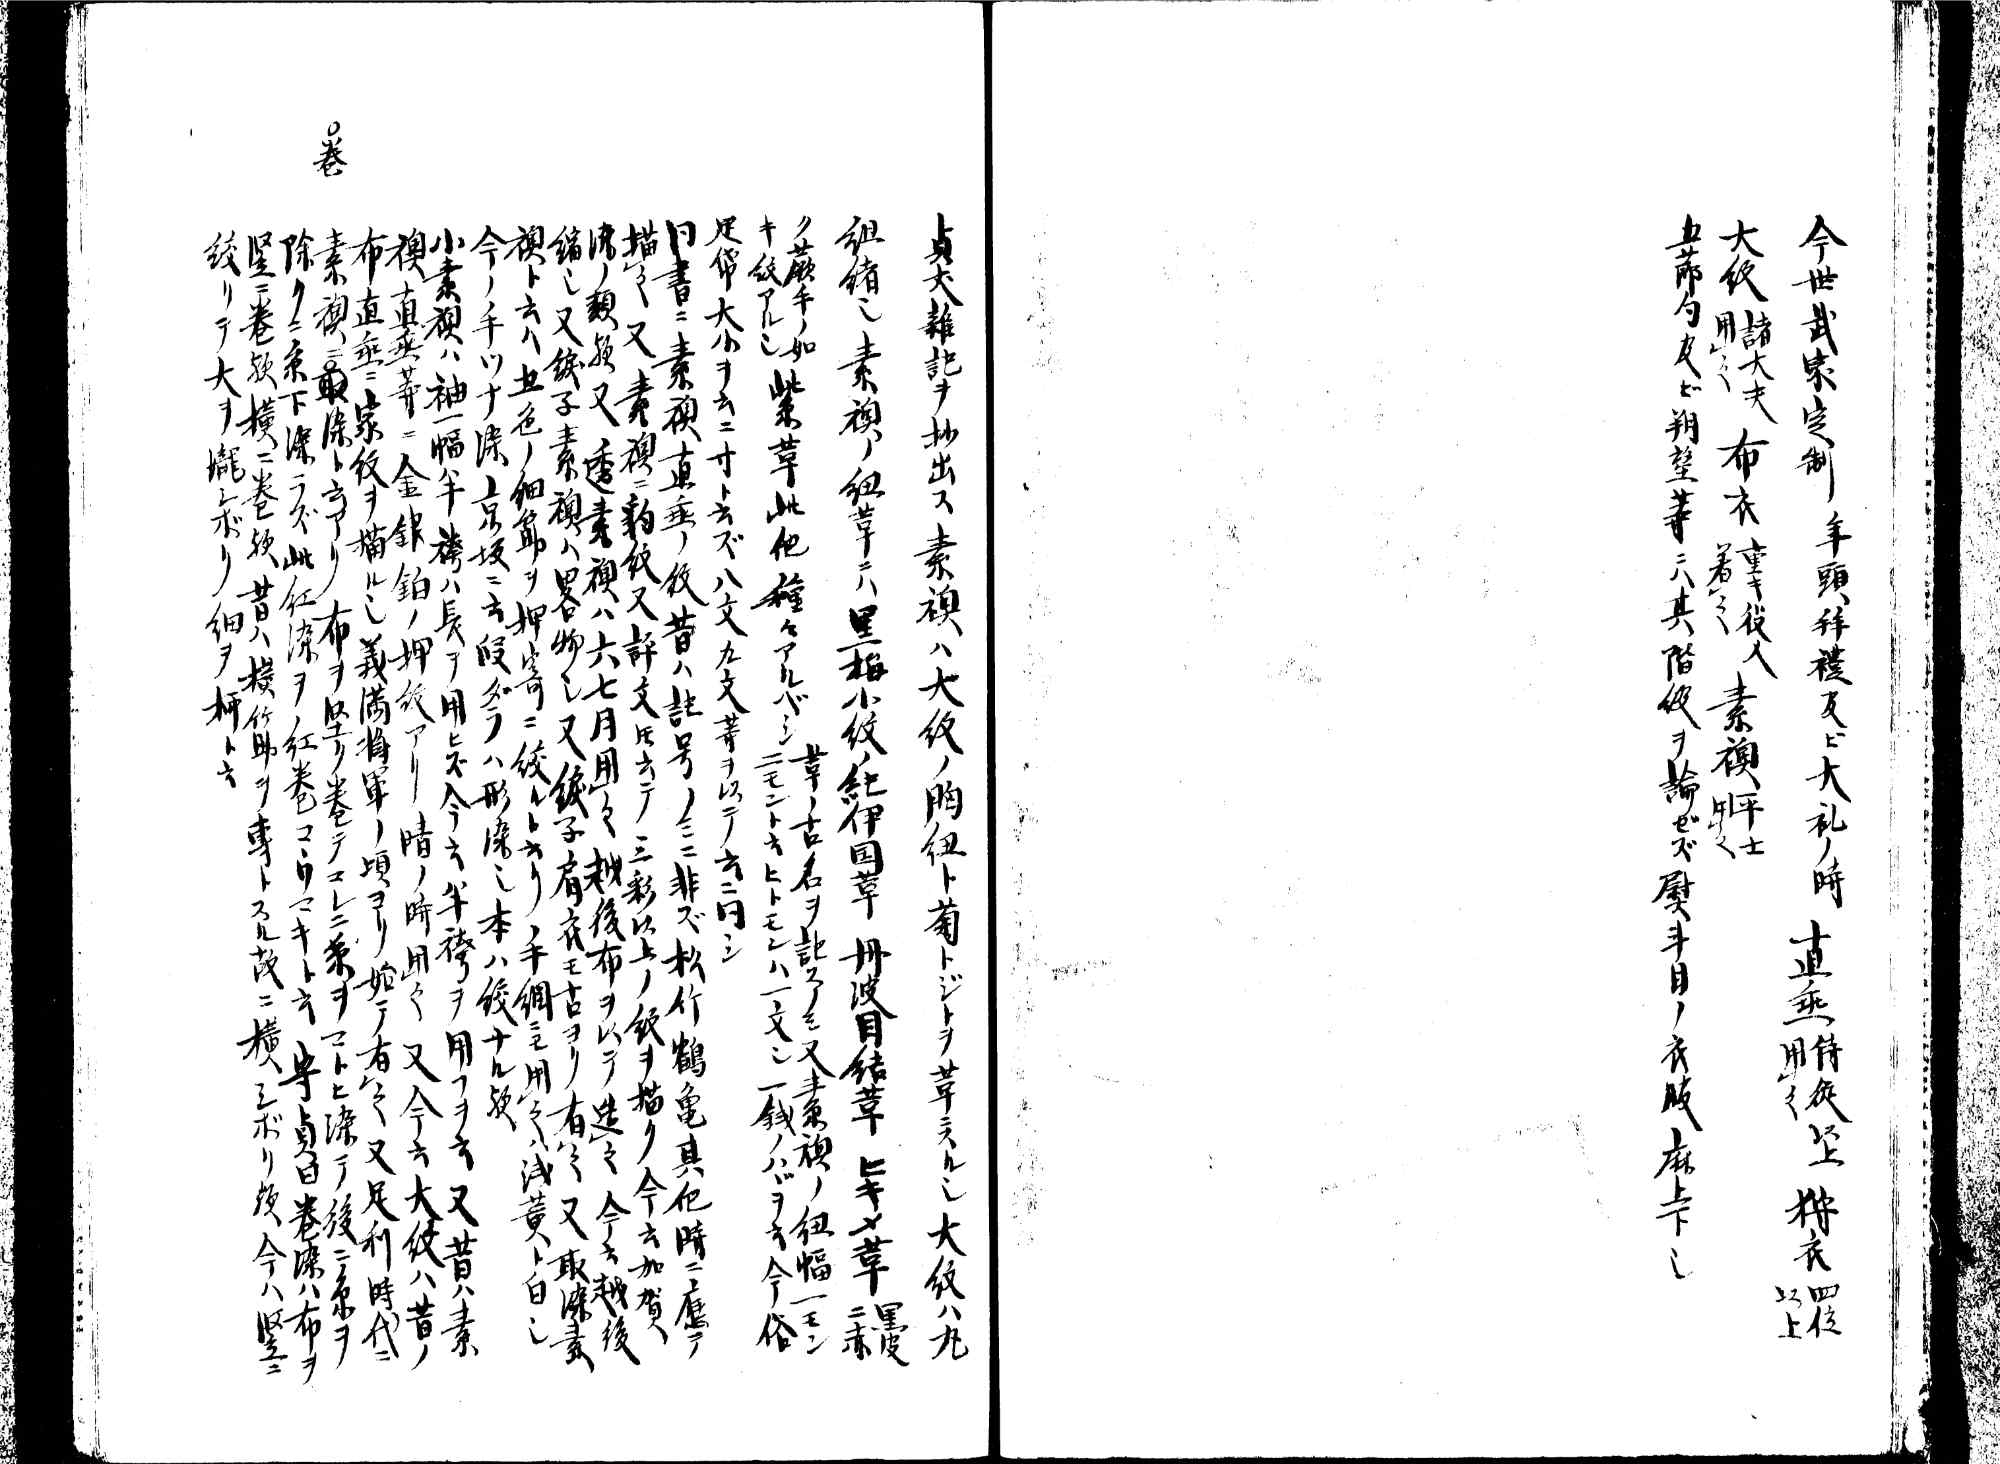 今世武家定制 年頭拝禮及ビ大礼ノ時 直垂 侍従以上用之 狩衣 四位以上
大紋 諸大夫用之 布衣 重キ役人着之 素襖 平士用之
五節句及ビ朔望等ニハ其階級ヲ論ゼズ熨斗目ノ衣服麻上下也
貞丈雑記ヲ抄出ス 素襖ハ大紋ノ胸紐ト菊トジトヲ革ニスル也大紋ハ丸
組緒也素襖ノ紐革ニハ黒梅小紋ノ紀伊国革 丹波目結革 ヒキメ革 黒皮ニ赤
ク蕨手ノ如キ紋アル也 紫革此他種々アルベシ 革ノ古名ヲ記スノミ又素襖ノ紐幅一モン
ニモント云ヒトモンハ一文也一銭ノハバヲ云今俗
足袋大小ヲ云ニ寸ト云ズ八文九文等ヲ以テ云ニ同シ
同書ニ素襖直垂ノ紋昔ハ記号ノミニ非ズ松竹鶴亀其他時ニ應テ
描之又素襖ニ豹紋又評文トモ云テ三彩以上ノ紋ヲ描ク今云加賀
染ノ類歟又透素襖ハ六七月用之越後布ヲ以テ造之今云越後
縮也又緞子素襖ハ畧物也又緞子肩衣モ古ヨリ有之又取染素
襖ト云ハ五色ノ細筋ヲ押寄ニ絞ルト云リノ手綱ニモ用之ハ浅黄ト白也
今ノ手ツナ染上京坂ニ云段ダラハ形染也本ハ絞ナル歟
小素襖ハ袖一幅半袴ハ長ヲ用ヒズ今云半袴ヲ用フヲ云又昔ハ素
襖直垂等ニ金銀鉑ノ押紋アリ晴ノ時用之又今云大紋ハ昔ノ
布直垂ニ家紋ヲ描ル也義満将軍ノ頃ヨリ始テ有之又足利時代ニ
素襖ニ取染ト云アリ布ヲ堅ク巻テコレニ糸ヲマトヒ染テ後ニ糸ヲ
除クニ糸下染ラズ此紅染ヲノ紅巻コウマキト云 守貞曰巻染ハ布ヲ
竪ニ巻歟横ニ巻歟昔ハ横竹筋ヲ専トスル故ニ横シボリ歟今ハ竪ニ
絞リテ大ヲ瀧シボリ細ヲ柳ト云
○巻